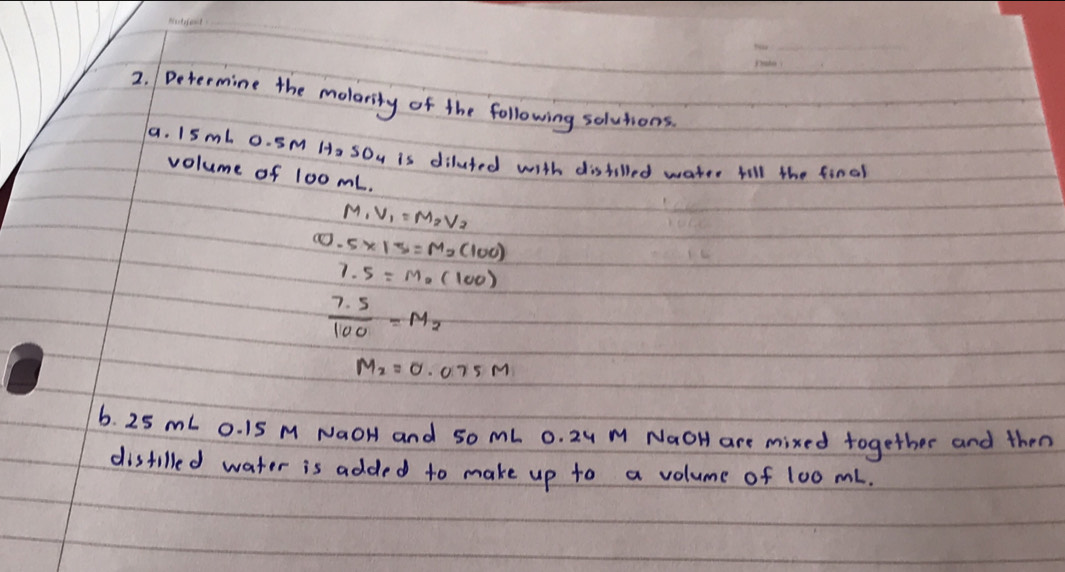 2. Determine the molarity of the following solutions.
a. 15 mL 0.5M H₂SO₄ is diluted with distilled water till the final
volume of 100 mL.
M₁V₁ = M₂V₂
0.5 × 15 = M₂ (100)
7.5 = M₂ (100)
7.5 / 100 = M₂
M₂ = 0.075 M
b. 25 mL 0.15 M NaOH and 50 mL 0.24 M NaOH are mixed together and then
distilled water is added to make up to a volume of 100 mL.